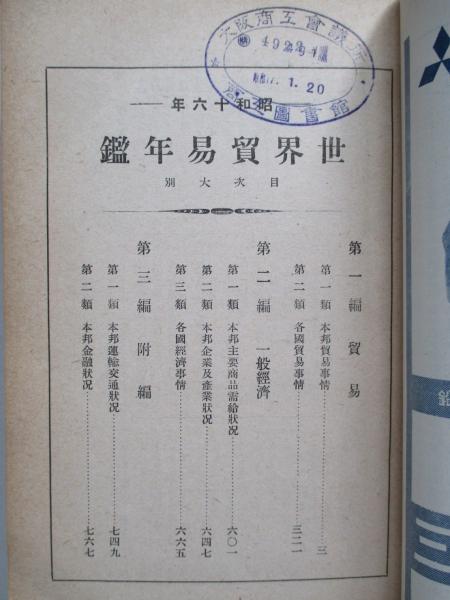 大阪商工會議所
商工圖書館
1.20
昭和十六年
世界貿易年鑑
目次大別
第一編 貿易
第一類 本邦貿易事情 三
第二類 各國貿易事情 三二一
第二編 一般經濟
第一類 本邦主要商品需給狀况 六〇一
第二類 本邦企業及產業狀况 六四七
第三類 各國經濟事情 六六五
第三編 附編
第一類 本邦運輸交通狀况 七四九
第二類 本邦金融狀况 七六七